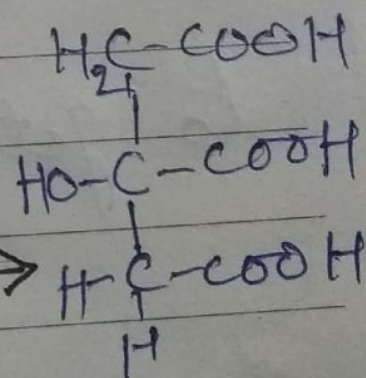 H₂C-COOH
HO-C-COOH
→ H-C-COOH
H